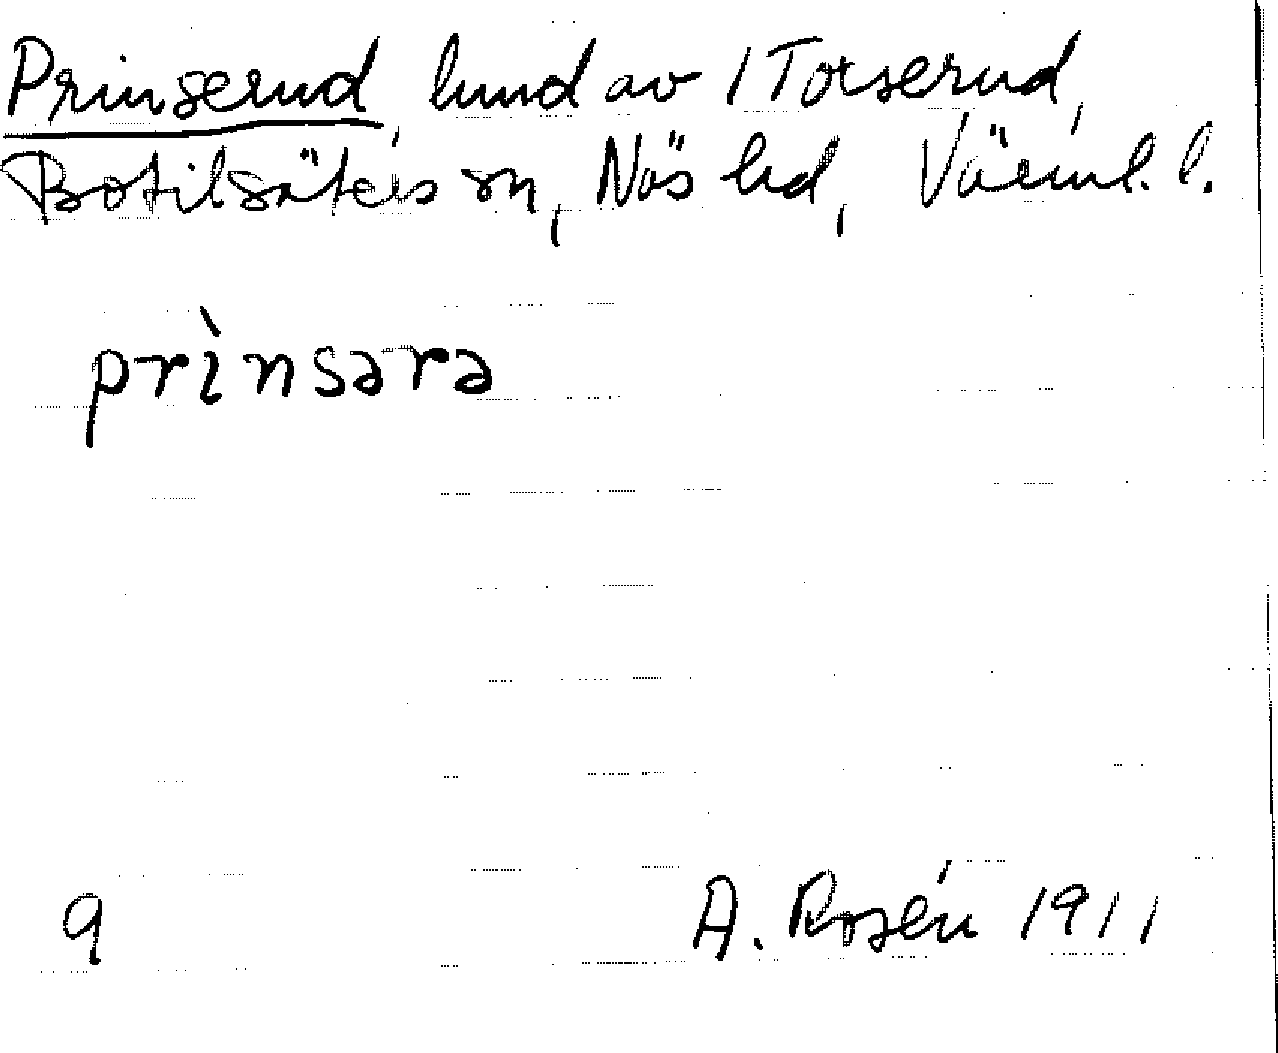 Prinserud, lund av 1 Torserud,
Botilsäters sn, Näs hd, Värml. l.
prìnsərə
9
A. Rosén 1911